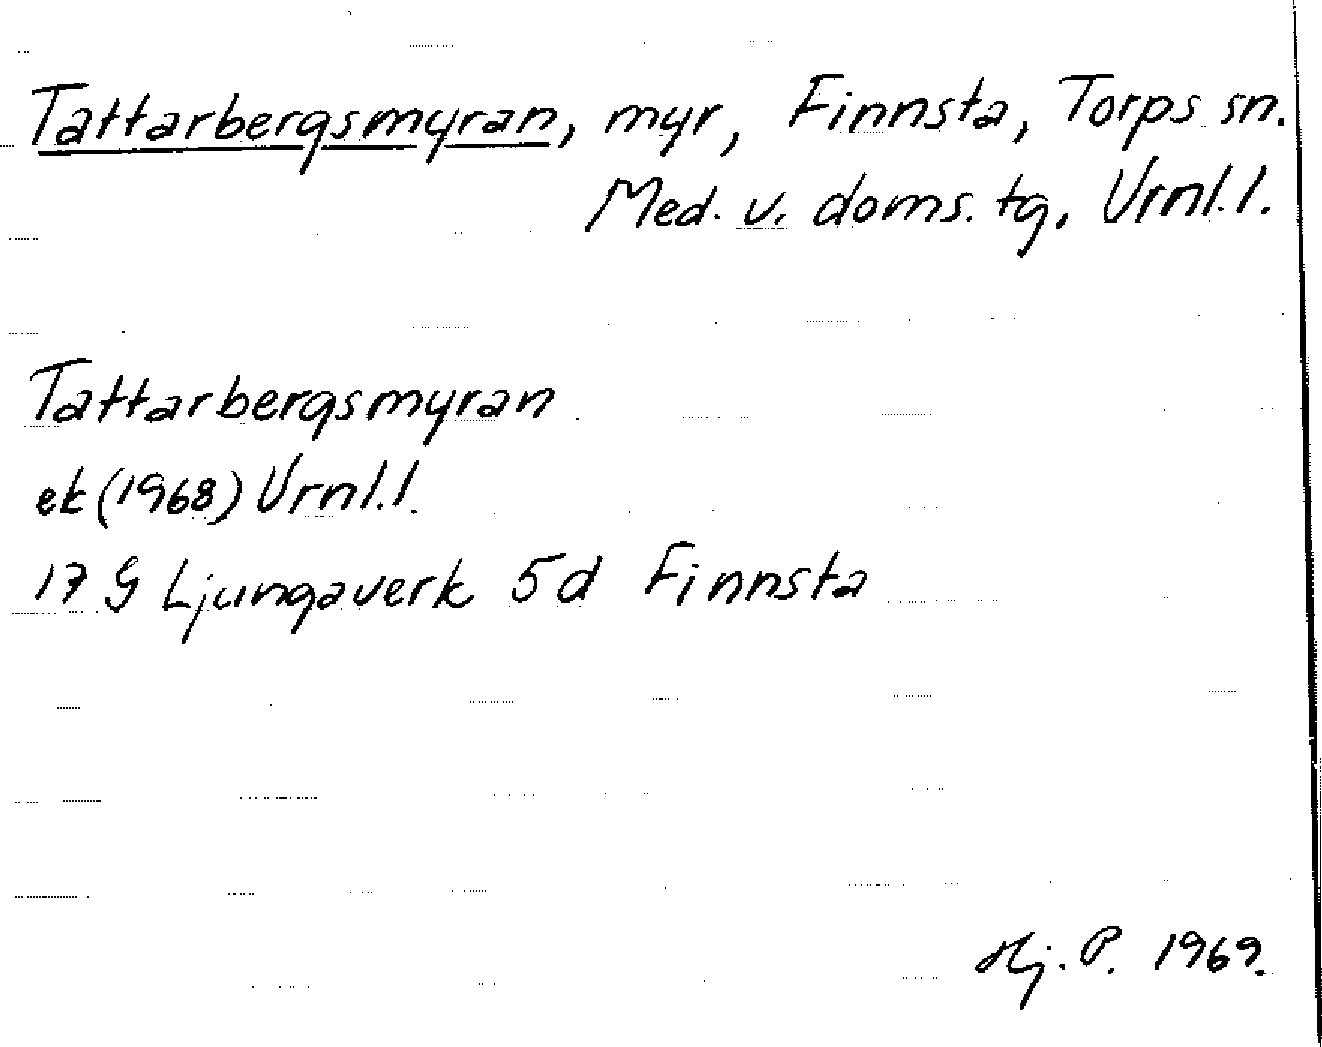 Tattarbergsmyran, myr, Finnsta, Torps sn.
Med. v. doms. tg, Vrnl.l.
Tattarbergsmyran
ek (1968) Vrnl.l.
17 G Ljungaverk 5d Finnsta
Hj. P. 1969.